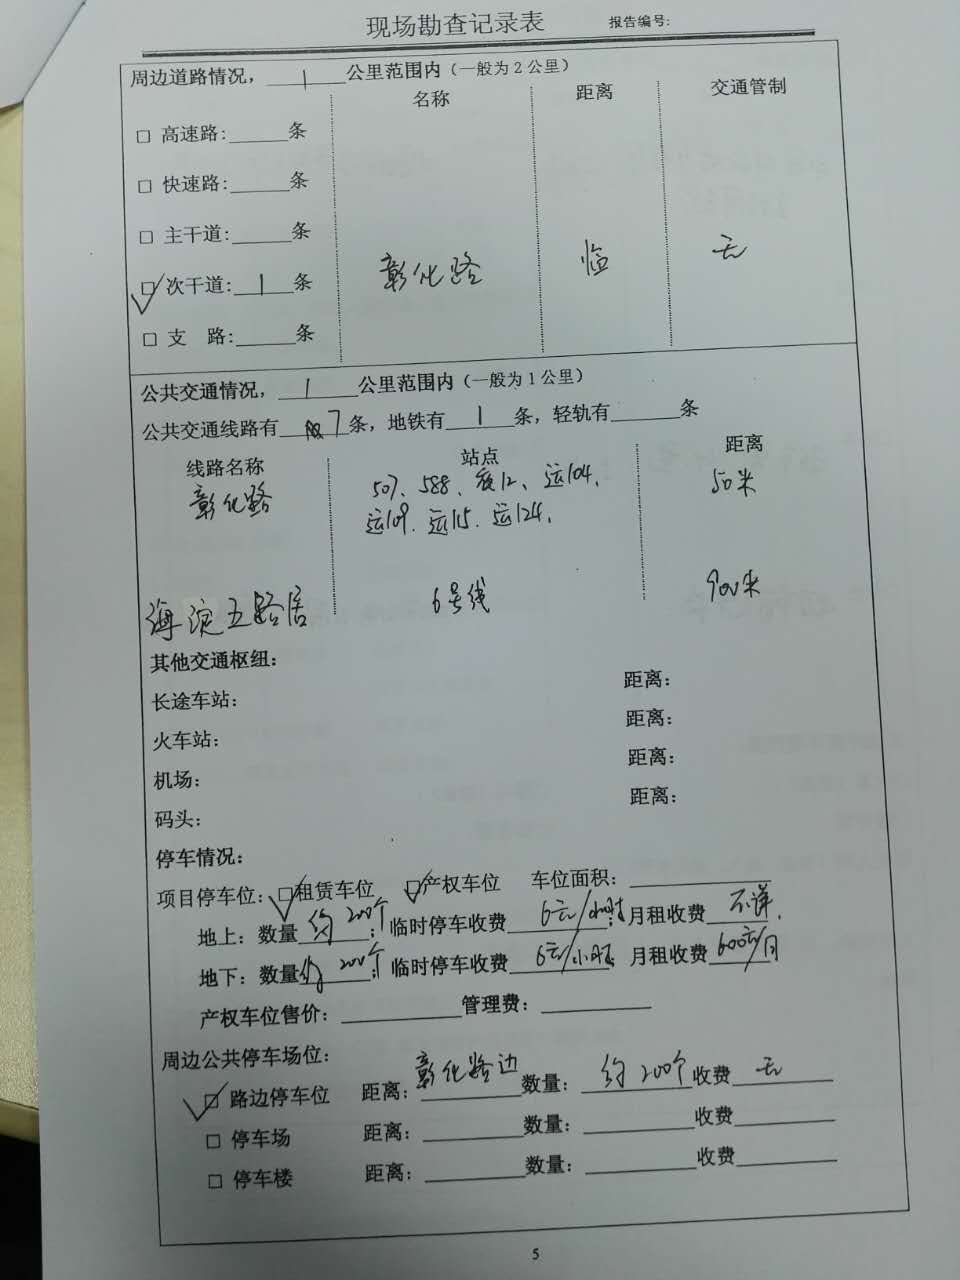 现场勘查记录表 报告编号:
周边道路情况，1公里范围内（一般为2公里）
名称 距离 交通管制
□ 高速路:______条
□ 快速路:______条
□ 主干道:______条
☑ 次干道: 1 条 彰化路 临 无
□ 支 路:______条
公共交通情况，1公里范围内（一般为1公里）
公共交通线路有 7条，地铁有 1 条，轻轨有______条
线路名称 站点 距离
彰化路 507、588、夜12、运104、 50米
运109、运115、运124、
海淀五路居 6号线 900米
其他交通枢纽：
长途车站： 距离：
火车站： 距离：
机场： 距离：
码头： 距离：
停车情况：
项目停车位：☑租赁车位 ☑产权车位 车位面积：________
地上：数量约200个；临时停车收费 6元/小时；月租收费 不详.
地下：数量约200个；临时停车收费 6元/小时；月租收费600元/月
产权车位售价：________管理费：________
周边公共停车场位：
☑ 路边停车位 距离：彰化路边 数量：约200个 收费 无
□ 停车场 距离：________数量：________收费________
□ 停车楼 距离：________数量：________收费________
5